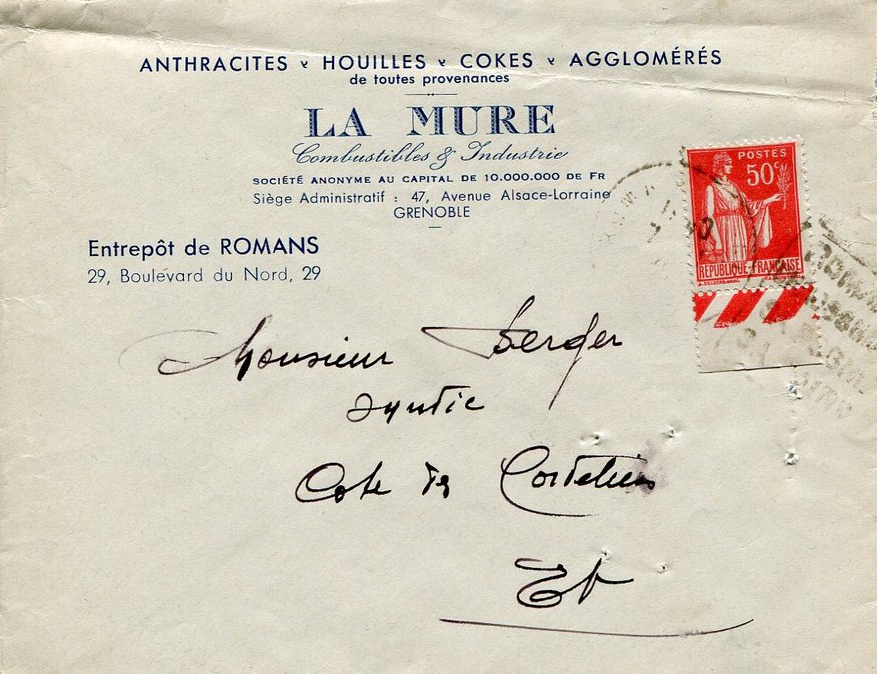 ANTHRACITES v HOUILLES v COKES v AGGLOMÉRÉS
de toutes provenances
LA MURE
Combustibles & Industrie
SOCIÉTÉ ANONYME AU CAPITAL DE 10.000.000 DE FR
Siège Administratif : 47, Avenue Alsace-Lorraine
GRENOBLE
POSTES
50c
RÉPUBLIQUE-FRANÇAISE
Entrepôt de ROMANS
29, Boulevard du Nord, 29
Monsieur Berger
syndic
Cote des Cordeliers